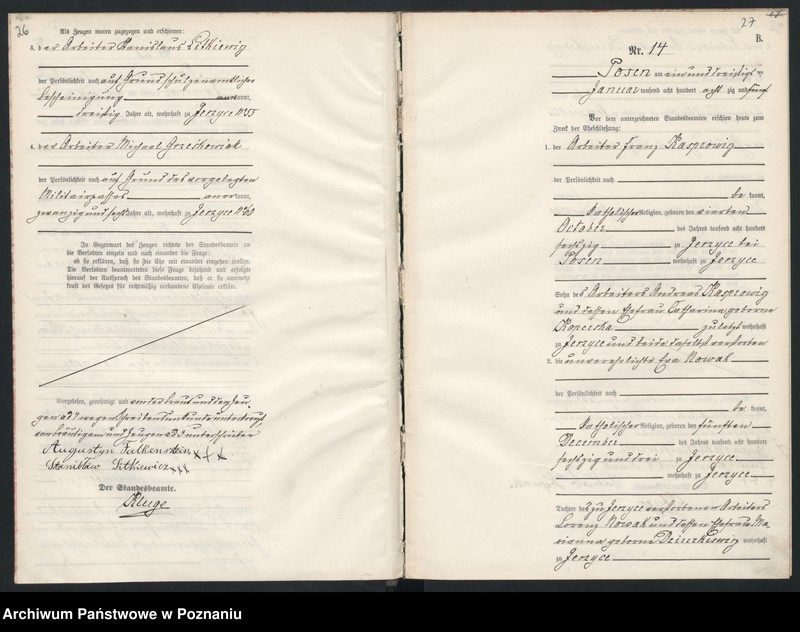 26
Als Zeugen waren zugezogen und erschienen:
3. der Arbeiter Stanislaus Litkiewig
der Persönlichkeit nach auf Grund schulzenamtlicher
Bescheinigung anerkannt,
dreißig Jahre alt, wohnhaft zu Jerzyce No 55
4. der Arbeiter Michael Grzeskowiak
der Persönlichkeit nach auf Grund des vorgelegten
Militairpasses anerkannt,
zwanzig und sechs Jahre alt, wohnhaft zu Jerzyce No 60
In Gegenwart der Zeugen richtete der Standesbeamte an
die Verlobten einzeln und nach einander die Frage:
ob sie erklären, daß sie die Ehe mit einander eingehen wollen.
Die Verlobten beantworteten diese Frage bejahend und erfolgte
hierauf der Ausspruch des Standesbeamten, daß er sie nunmehr
kraft des Gesetzes für rechtmäßig verbundene Eheleute erkläre.
Vorgelesen, genehmigt und von der Braut und den Zeu-
gen wegen Schreibensunkunde unterkreuzt,
vom Bräutigam und Zeugen ad 3 unterschrieben
Augustyn Falkenstein, +++
Stanisław Litkiewicz +++
Der Standesbeamte.
Kluge
27
B.
Nr. 14
Posen am ein und dreißigsten
Januar tausend acht hundert achtzig und fünf
Vor dem unterzeichneten Standesbeamten erschien heute zum
Zweck der Eheschließung:
1. der Arbeiter Franz Kasprowig
der Persönlichkeit nach
bekannt,
katholischer Religion, geboren den vierten
October des Jahres tausend acht hundert
sechzig zu Jerzyce bei
Posen wohnhaft zu Jerzyce
Sohn des Arbeiters Andreas Kasprowig
und dessen Ehefrau Catharina geborene
Konerska zuletzt wohnhaft
zu Jerzyce und beide daselbst verstorben
2. die unverehelichte Eva Nowak
der Persönlichkeit nach
bekannt,
katholischer Religion, geboren den fünften
December des Jahres tausend acht hundert
sechzig und drei zu Jerzyce
wohnhaft zu Jerzyce
Tochter des zu Jerzyce verstorbenen Arbeiters
Lorenz Nowak und dessen Ehefrau Ma-
rianna geborene wohnhaft
zu Jerzyce
Archiwum Państwowe w Poznaniu